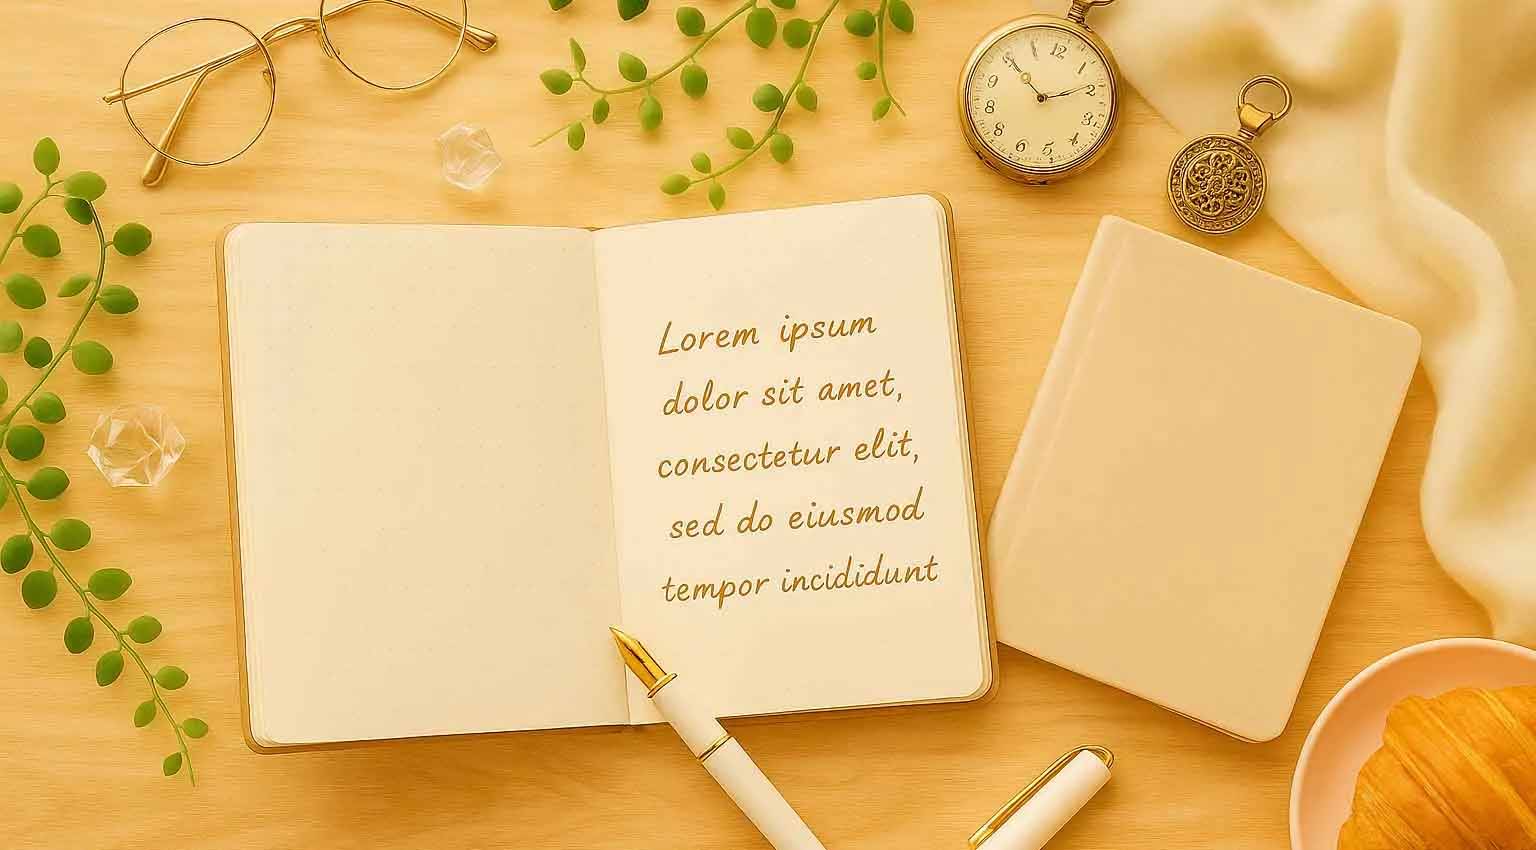 Lorem ipsum
dolor sit amet,
consectetur elit,
sed do eiusmod
tempor incididunt
12
1
2
3
5
6
8
8
9